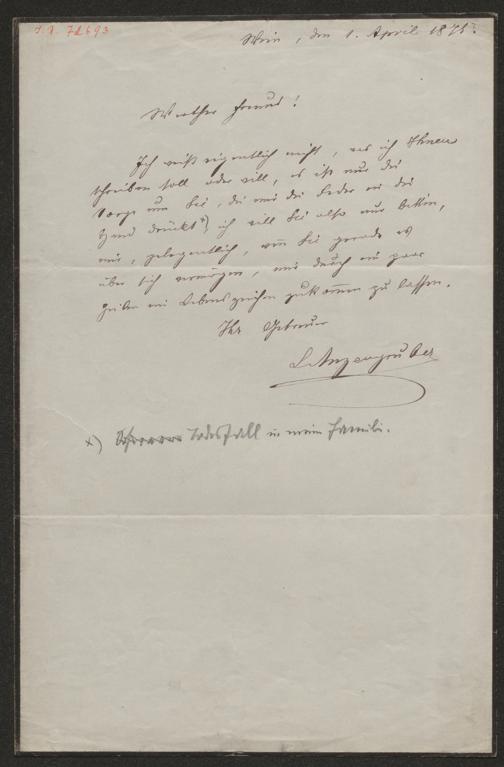 I. N. 72693
Wien, den 1. April 1875.
Werther Freund!
Ich weiß eigentlich nicht, was ich Ihnen
schreiben soll oder will, es ist nur die
Sorge um Sie, die mir die Feder in die
Hand drückt*), ich will Sie also nur bitten,
mir, gelegentlich, wenn Sie gerade es
über sich vermögen, mir durch ein paar
Zeilen ein Lebenszeichen zukommen zu lassen.
Ihr Getreuer
L Anzengruber
x) Todesfall in meiner Familie.